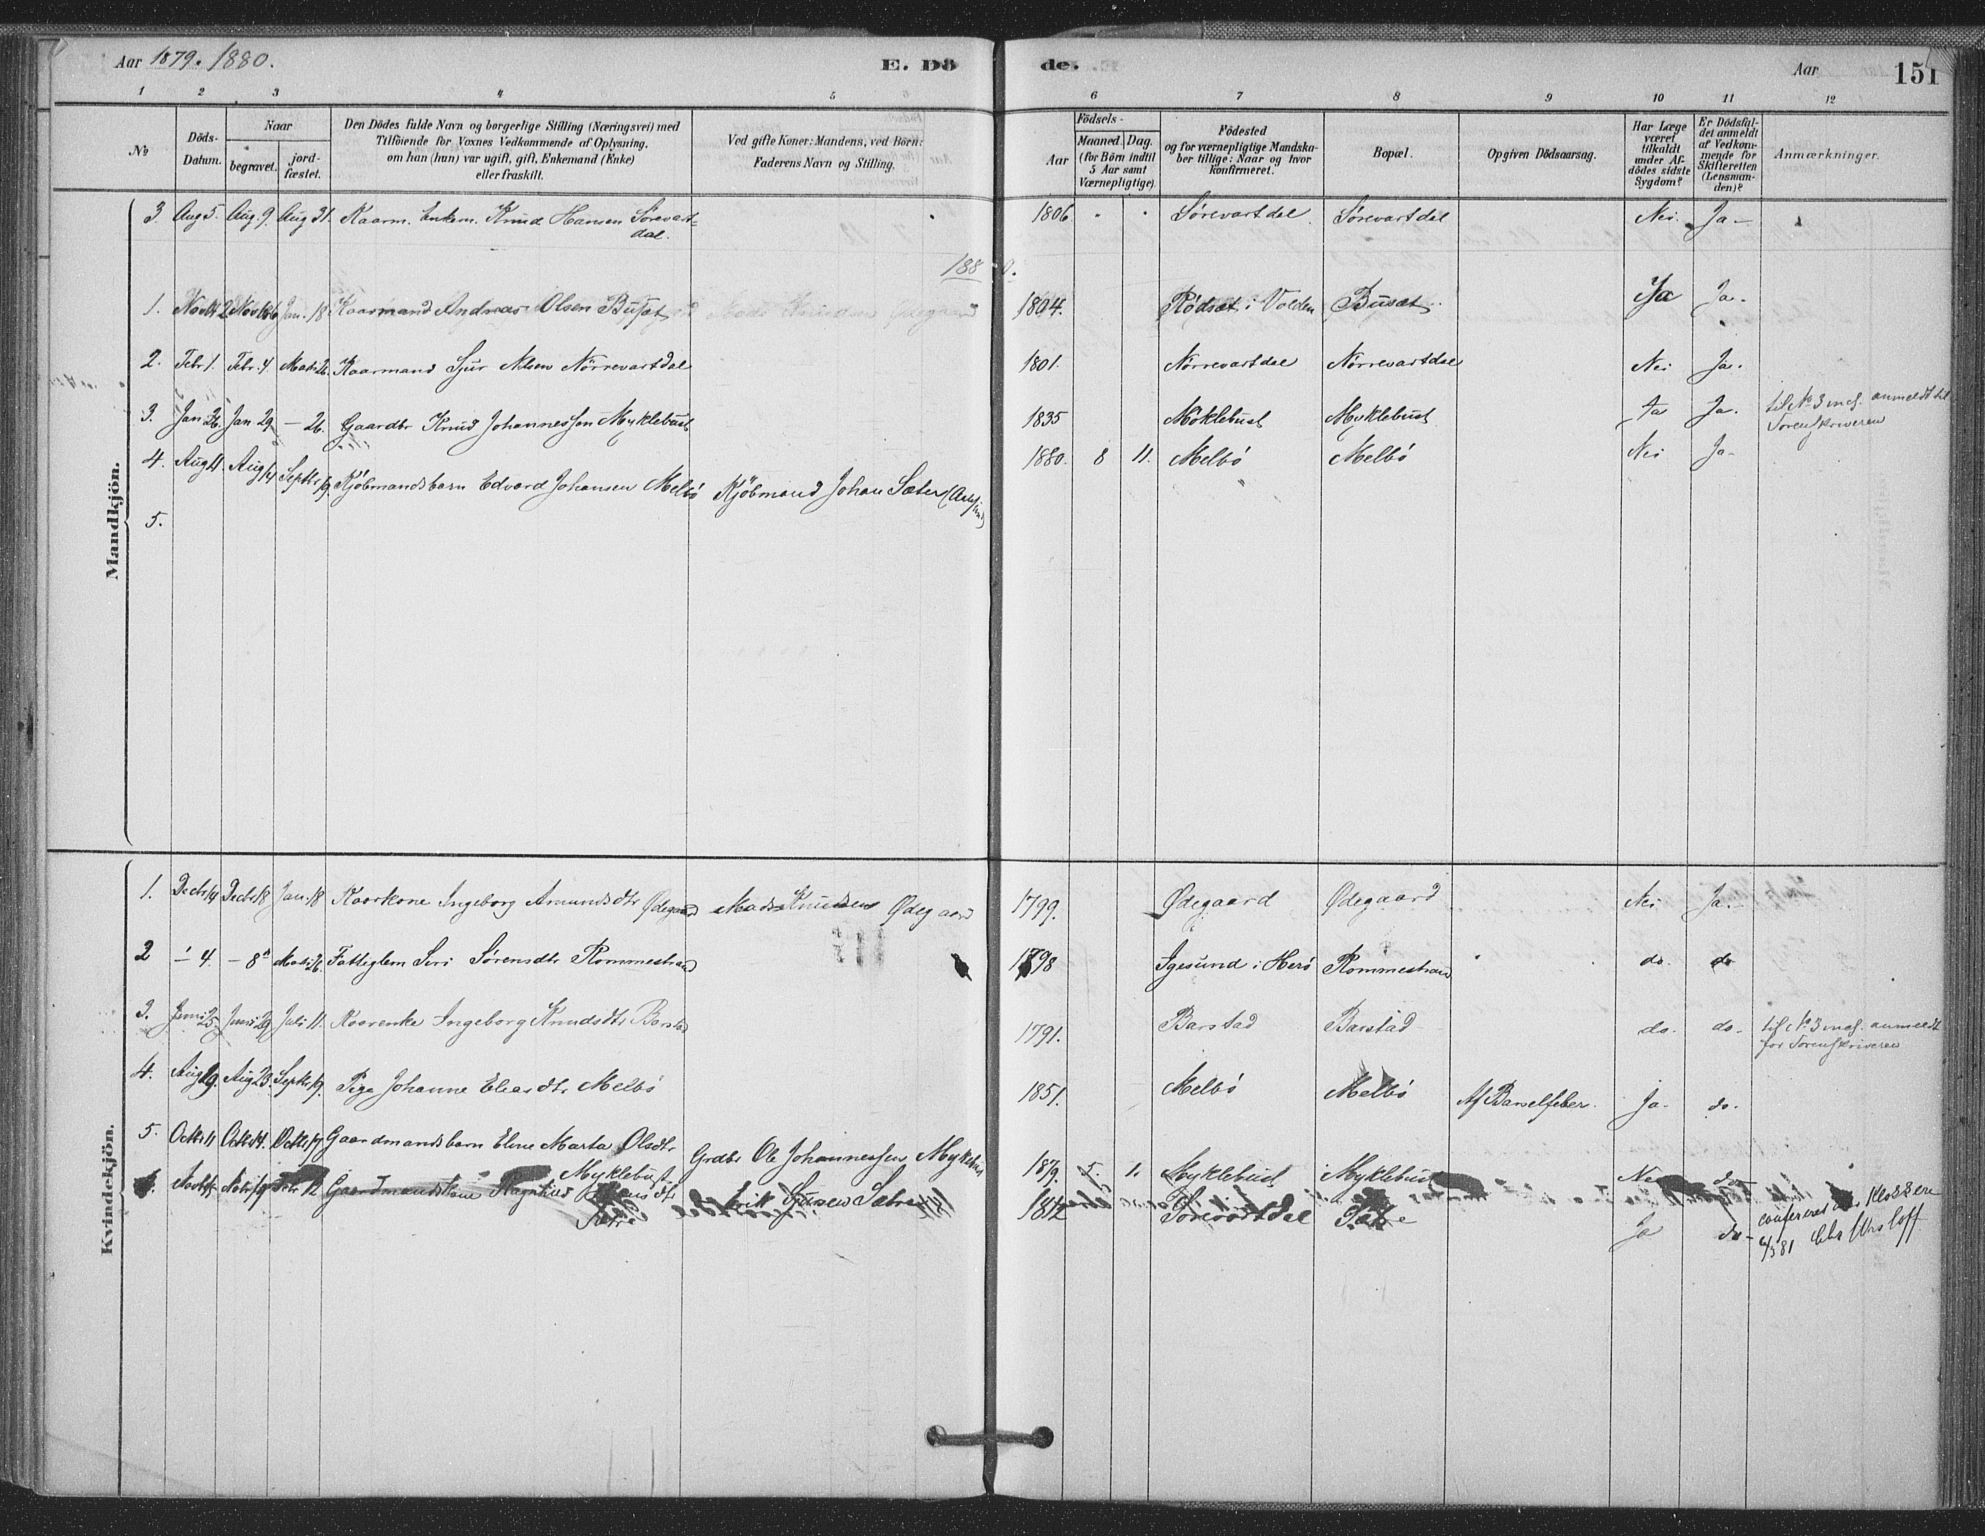 Aar 1879. 1880.
E. Dö
de.
Aar
151
1 2 3 4 5 6 7 8 9 10 11 12
No
Döds-Datum.
Naar
begravet.
jord-fæstet.
Den Dödes fulde Navn og borgerlige Stilling (Næringsvei) med
Tilföiende for Voxnes Vedkommende af Oplysning,
om han (hun) var ugift, gift, Enkemand (Enke)
eller fraskilt.
Ved gifte Koner: Mandens, ved Börn:
Faderens Navn og Stilling.
Födsels-
Aar
Maaned. Dag.
(for Börn indtil
5 Aar samt
Værnepligtige).
Födested
og for værnepligtige Mandska-
ber tillige: Naar og hvor
konfirmeret.
Bopæl.
Opgiven Dödsaarsag.
Har Læge
været
tilkaldt
under Af-
dödes sidste
Sygdom?
Er Dödsfal-
det anmeldt
af Vedkom-
mende for
Skifteretten
(Lensman-
den)?
Anmærkninger.
Mandkjön.
3. Aug 5. Aug 9. Aug 31. Kaarm. Enkem. Knud Hansen Sörevart-
dal.
1806 Sörevartdal Sörevartdal Nei. Ja
1880.
1. Jan. 18 Kaarmand Andreas Olsen Busæt 1804. Rödsæt i Volden Busæt. Ja Ja.
2. Febr 1. Febr. 4. Kaarmand Sjur Nilsen Nörrevartdal 1801. Nörrevartdal Nörrevartdal Nei Ja.
3. Jan 26. Jan 29 — 26. Gaardbr Knud Johannessen Myklebust 1835 Möklebust Myklebust Ja Ja. til No 3 anmeldt til
Sorenskriveren
4. Aug 11. Aug 14 Septbr 19. Kjöbmandsbarn Edvard Johansen Melbö Kjöbmand Johan Sæter 1880. 8 11. Melbö Melbö Nei Ja
5.
Kvindekjön.
1. Decbr 14 Decbr 18 Jan 18 Kaarkone Ingeborg Amundsdtr Ødegaard Mads Knudsen Ødegaard 1799. Ødegaard Ødegaard Nei Ja.
2 — 4. — 8 Fattiglem Siri Sörensdtr Rommestrand 1798 Igesund i Herö Rommestrand do. do
3. Juni 25. Juni 29 Juli 11. Kaarenke Ingeborg Knudsdtr Barstad 1791. Barstad Barstad do. do. til No 3 anmeldt
for Sorenskriveren
4. Aug 19. Aug 23. Septbr 19. Pige Johanne Eleasdtr Melbö 1851. Melbö Melbö Af Barselfeber. Ja. do.
5. Octbr 11 Octbr 14. Octbr 17 Gaardmandsbarn Eline Marta Olsdtr
Myklebust
Grdbr Ole Johannessen Myklebust 1879. 5. 1. Myklebust Myklebust Nei do
Gaardmandskone Erik Sjursen Sætre 1812 Sörevartdal Sætre Ja do